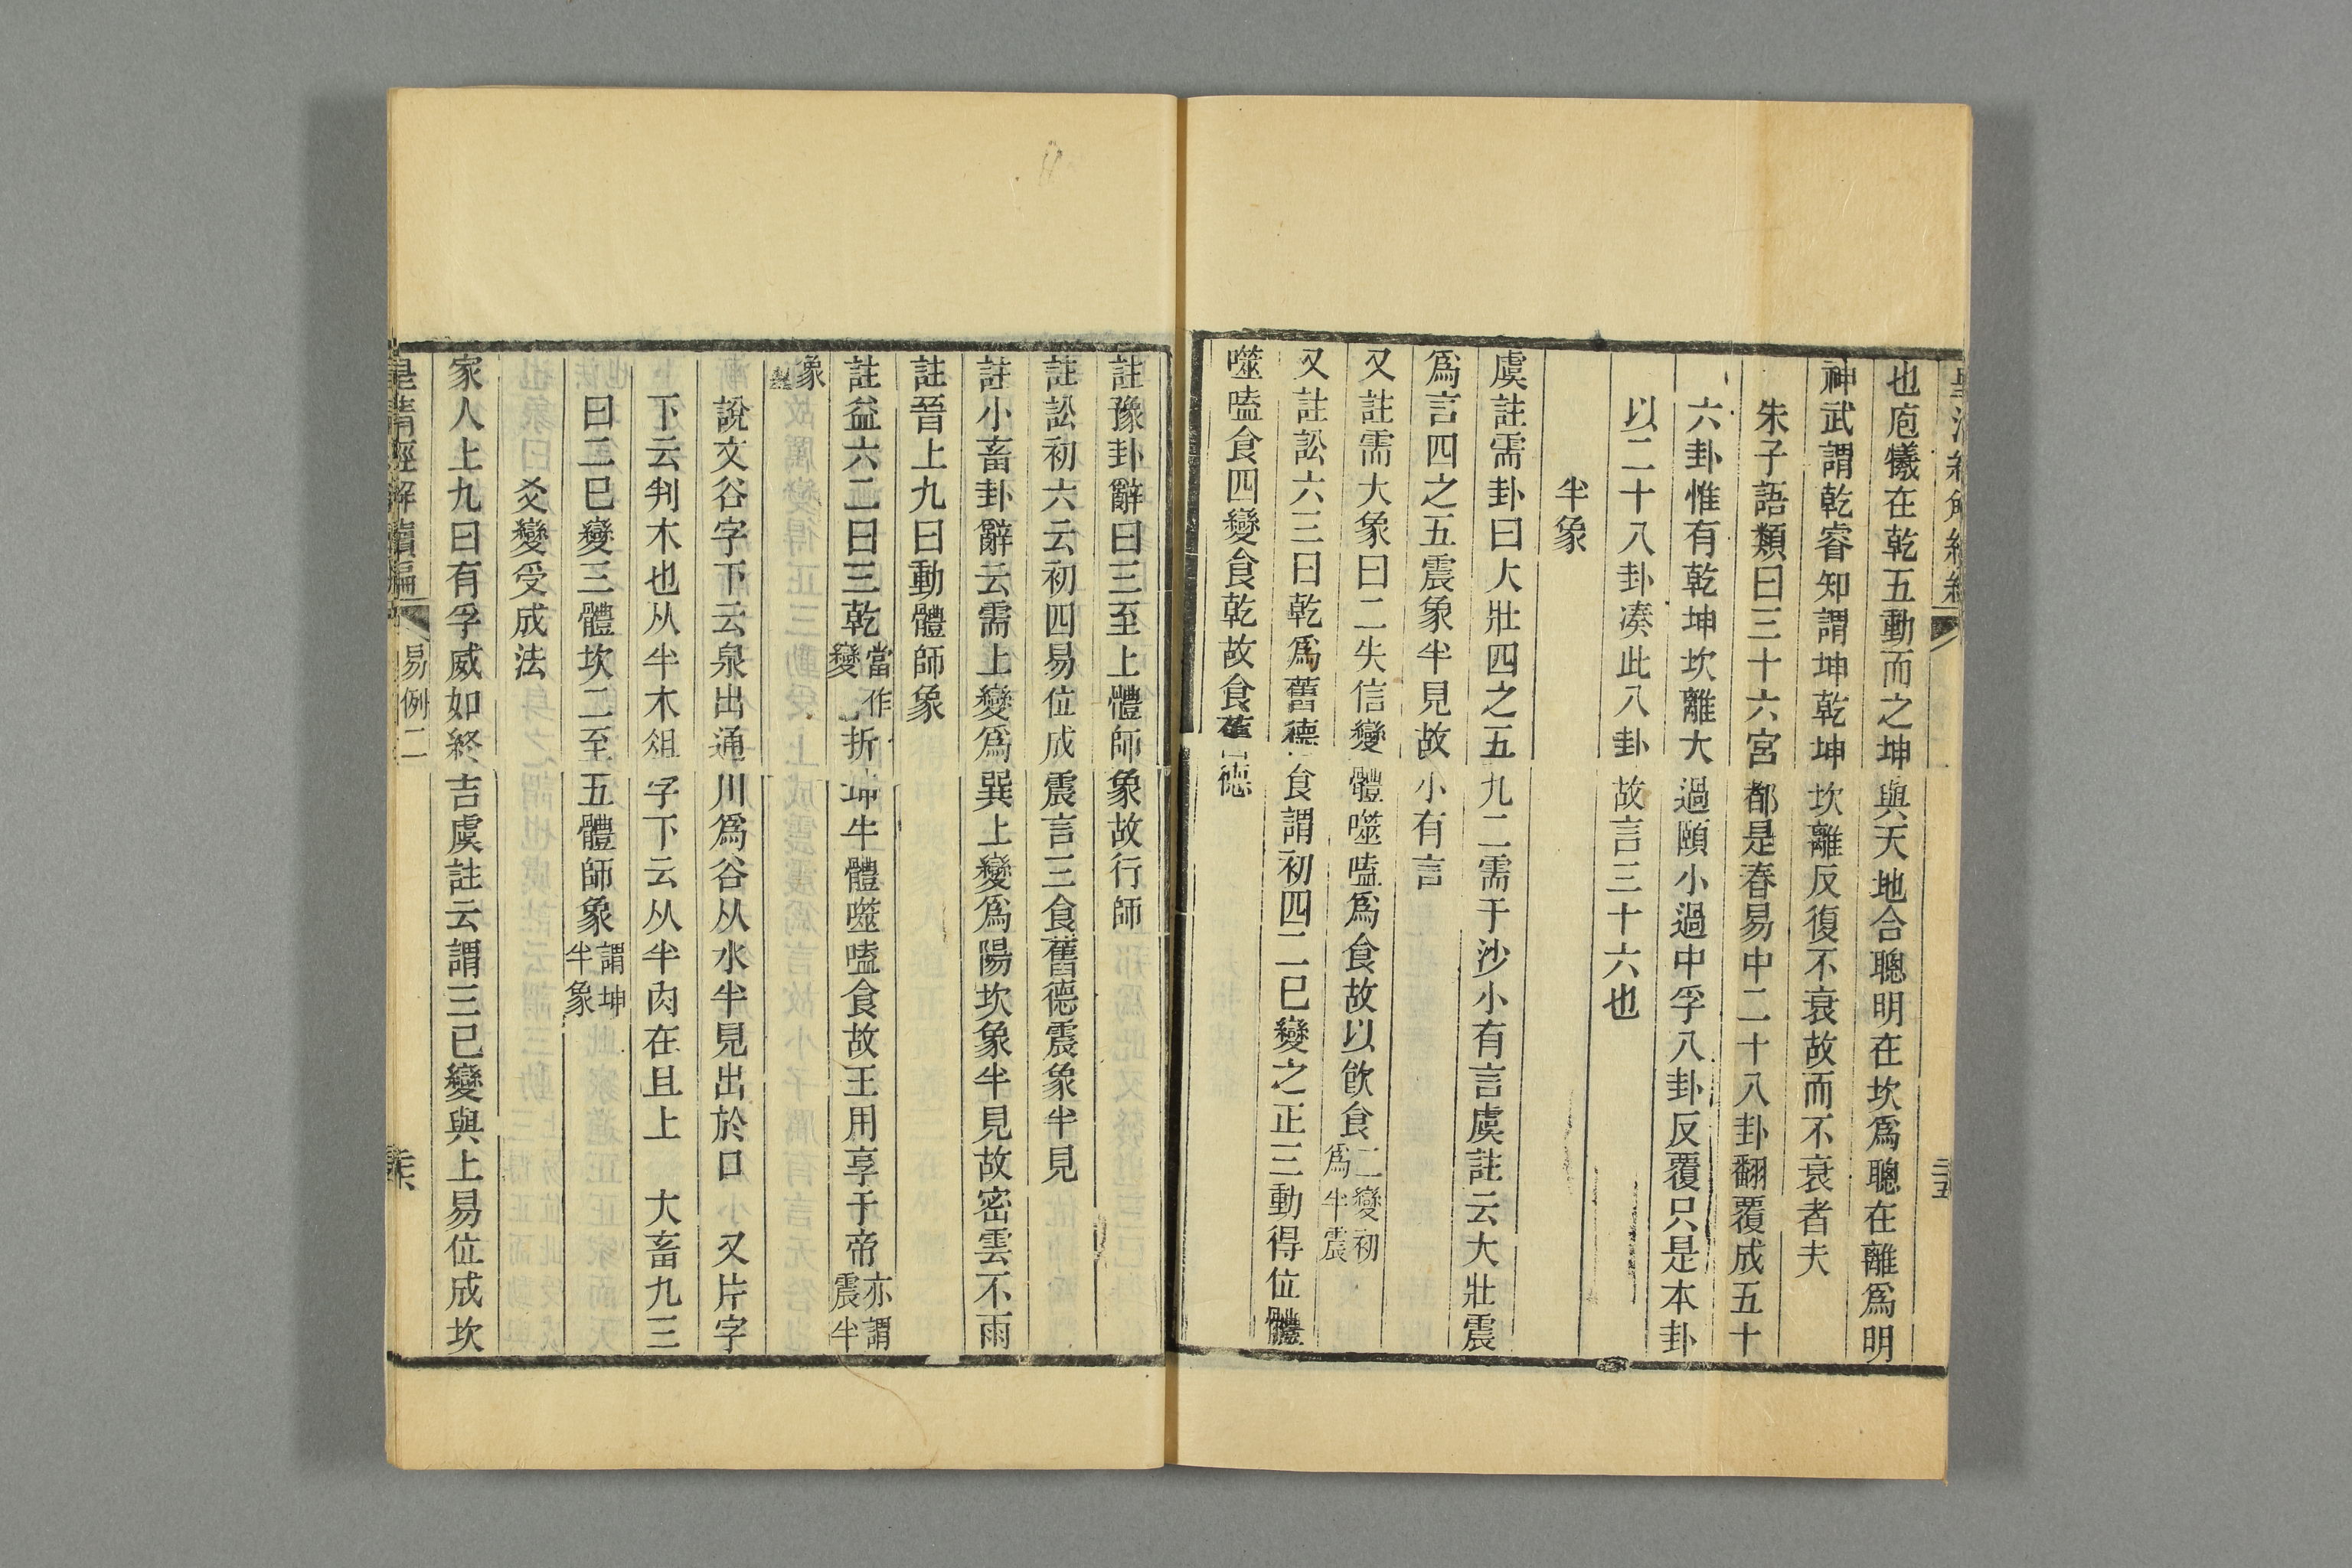 也庖犧在乾五動而之坤與天地合聰明在坎爲聰在離爲明
神武謂乾睿知謂坤乾坤坎離反復不衰故而不衰者夫
朱子語類曰三十六宮都是春易中二十八卦翻覆成五十
六卦惟有乾坤坎離大過頤小過中孚八卦反覆只是本卦
以二十八卦凑此八卦故言三十六也
半象
虞註需卦曰大壯四之五九二需于沙小有言虞註云大壯震
爲言四之五震象半見故小有言
又註需大象曰二失信變體噬嗑爲食故以飮食二變初爲半震
又註訟六三曰乾爲舊德食謂初四二已變之正三動得位體
噬嗑食四變食乾故食舊德
註豫卦辭曰三至上體師象故行師
註訟初六云初四易位成震言三食舊德震象半見
註小畜卦辭云需上變爲巽上變爲陽坎象半見故密雲不雨
註晉上九曰動體師象
註益六二曰三乾當作變折坤牛體噬嗑食故王用享于帝亦謂震半
象
說文谷字下云泉出通川爲谷从水半見出於口 又片字
下云判木也从半木俎字下云从半肉在且上 大畜九三
曰二已變三體坎二至五體師象謂坤半象
爻變受成法
家人上九曰有孚威如終吉虞註云謂三已變與上易位成坎
皇清經解續編 易例二